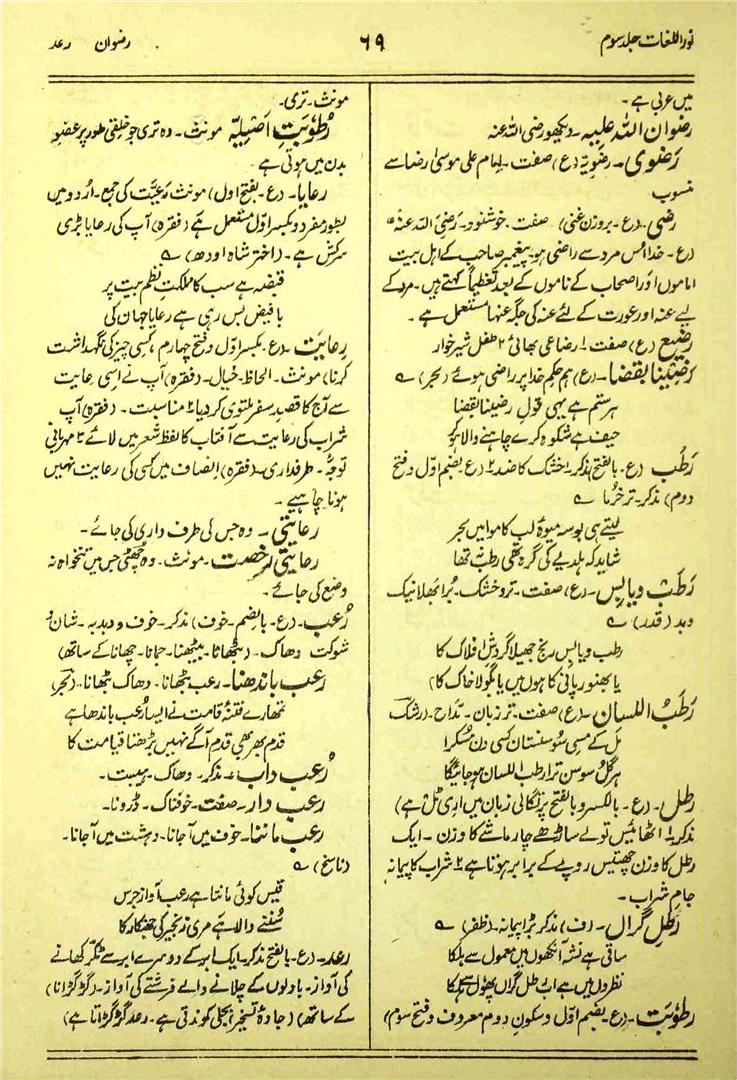 نور اللغات جلد سوم
۶۹
رضوان
رعد
میں عربی ہے۔
رضوان اللہ علیہ۔ دیکھو رضی اللہ عنہ
رَضَوِی۔ رضویّہ (ع) صفت۔ امام علی موسیٰ رضا سے
منسوب
رضی۔ (ع۔ بروزن غنی) صفت۔ خوشنود۔ رَضِیَ اللہ عنہ
(ع۔ خدا اس مرد سے راضی ہو۔ پیغمبر صاحب کے اہل بیت
اماموں اور اصحاب کے ناموں کے بعد تعظیماً کہتے ہیں۔ مرد کے
لیے عنہ اور عورت کے لئے عنہ کی جگہ عنہا مستعمل ہے۔
رضیع (ع) صفت ۱ رضاعی بھائی ۲ طفل شیر خوار
رَضِینا بقضا۔ (ع) ہم حکمِ خدا پر راضی ہوئے (بحر) ؎
ہر ستم ہے یہی قولِ رضینا بقضا
حیف ہے شکوہ کرے چاہنے والا ہو کر
رَطْب (ع۔ بالفتح) مذکر ۱ خشک کا ضد ۲ (ع۔ بضم اوّل و فتح
دوم) مذکر۔ تر خُرما ؎
لیتے ہی بوسہ میوۂ لب کا موا میں بحر
شاید کہ ہلدیے کی گرہ تھی رطب نہ تھا
رَطْب و یابِس۔ (ع) صفت۔ تر و خشک۔ بُرا بھلا نیک
و بد (قدر) ؎
رطب و یابس رنج جھیلا گردشِ افلاک کا
یا بھنور پانی کا ہوں میں یا بگولا خاک کا
رَطْبُ اللسان۔ (ع) صفت۔ تر زبان۔ مدّاح۔ (رشک)
مَل کے مسی سوسنستاں کسی دن مسکرا
ہر گلِ سوسن ترا رطب اللساں ہو جائیگا
رطل۔ (ع۔ بالکسر و بالفتح پرتگالی زبان میں ارِی ٹل ہے)
مذکر ۱ اٹھائیس تولے ساڑھے چار ماشے کا وزن۔ ایک
رطل کا وزن چھتیس روپے کے برابر ہوتا ہے ۲ شراب کا پیمانہ
جامِ شراب۔
رَطلِ گراں۔ (ف) مذکر بڑا پیمانہ۔ (ظفر) ؎
ساقی ہے نشہ آنکھوں میں معمول سے ہلکا
نظروں میں ہے اب رطل گراں پھول سے ہلکا
رطوبت۔ (ع۔ بضم اوّل و سکون دوم معروف و فتح سوم)
مونث۔ تری۔
رُطُوبَتِ اَصْلِیَّہ مونث۔ وہ تری جو خلقی طور پر عضوِ
بدن میں ہوتی ہے
رعایا۔ (ع۔ بفتح اول) مونث رَعِیَّت کی جمع۔ اُردو میں
بطور مفرد و بکسر اوّل مستعمل ہے (فقرہ) آپ کی رعایا بڑی
سرکش ہے۔ (اختر شاہ اودھ) ؎
قبضہ ہے سب کا مملکتِ نظم بیت پر
با فیض بس رہی ہے رعایا جہان کی
رِعایَت۔ (ع۔ بکسر اوّل و فتح چہارم، کسی چیز کی نگہداشت
کرنا) مونث۔ ۱ لحاظ۔ خیال۔ (فقرہ) آپ نے اسی رعایت
سے آج کا قصدِ سفر ملتوی کر دیا ۲ مناسبت۔ (فقرہ) آپ
شراب کی رعایت سے آفتاب کا لفظ شعر میں لائے ۳ مہربانی
توجّہ۔ طرفداری۔ (فقرہ) انصاف میں کسی کی رعایت نہیں
ہونا چاہیے۔
رعایتی۔ وہ جس کی طرف داری کی جائے۔
رعایتی رخصت۔ مونث۔ وہ چھٹی جس میں تنخواہ نہ
وضع کی جائے۔
رُعب۔ (ع۔ بالضم۔ خوف) مذکر۔ خوف و دبدبہ۔ شان و
شوکت دھاک۔ (بٹھانا۔ بیٹھنا۔ جمانا۔ چھانا کے ساتھ)
رعب باندھنا۔ رعب بٹھانا۔ دھاک بٹھانا۔ (بحر)
تمھارے فتنۂ قامت نے ایسا رُعب باندھا ہے
قدم بھر بھی قدم آگے نہیں بڑھتا قیامت کا
رُعب داب۔ مذکر۔ دھاک۔ ہیبت۔
رعب دار۔ صفت۔ خوفناک۔ ڈرونا۔
رعب ماننا۔ خوف میں آ جانا۔ دہشت میں آ جانا۔
(ناسخ) ؎
قیس کوئی مانتا ہے رعب آوازِ جرس
سُننے والا ہے مری زنجیر کی جھنکار کا
رعد۔ (ع۔ بالفتح) مذکر۔ ایک ابر کے دوسرے ابر سے ٹکر کھانے
کی آواز۔ بادلوں کے چلانے والے فرشتے کی آواز۔ (گڑگڑانا)
کے ساتھ) (جادۂ تسخیر) بجلی کوندتی ہے۔ رعد گڑگڑاتا ہے)